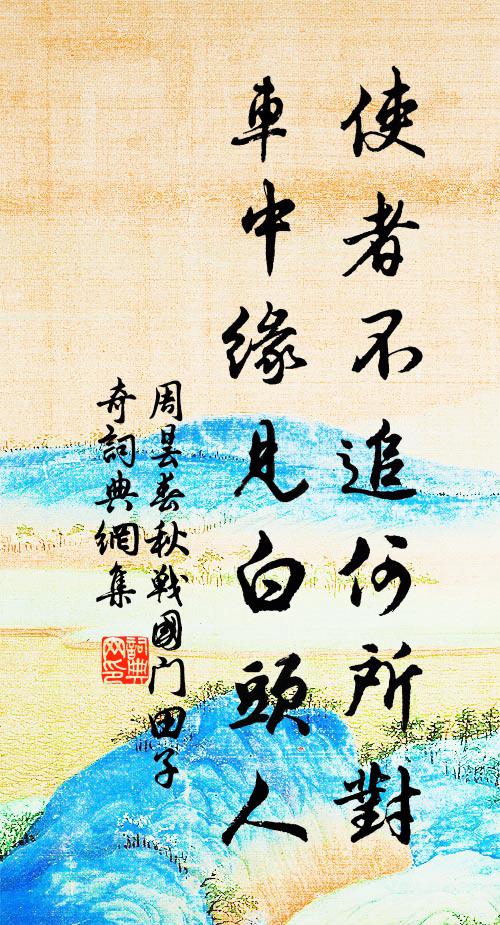 使者不追何所對
車中緣見白頭人
周昙春秋戰國门田子
奇詞典網集
詞典